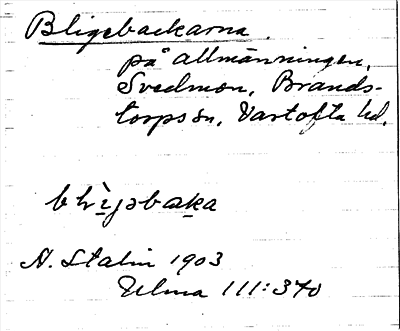 Bligebackarna.
på allmänningen,
Svedmon, Brands-
torps sn, Vartofta hd.
A. Stalin 1903
Ulma 111:370